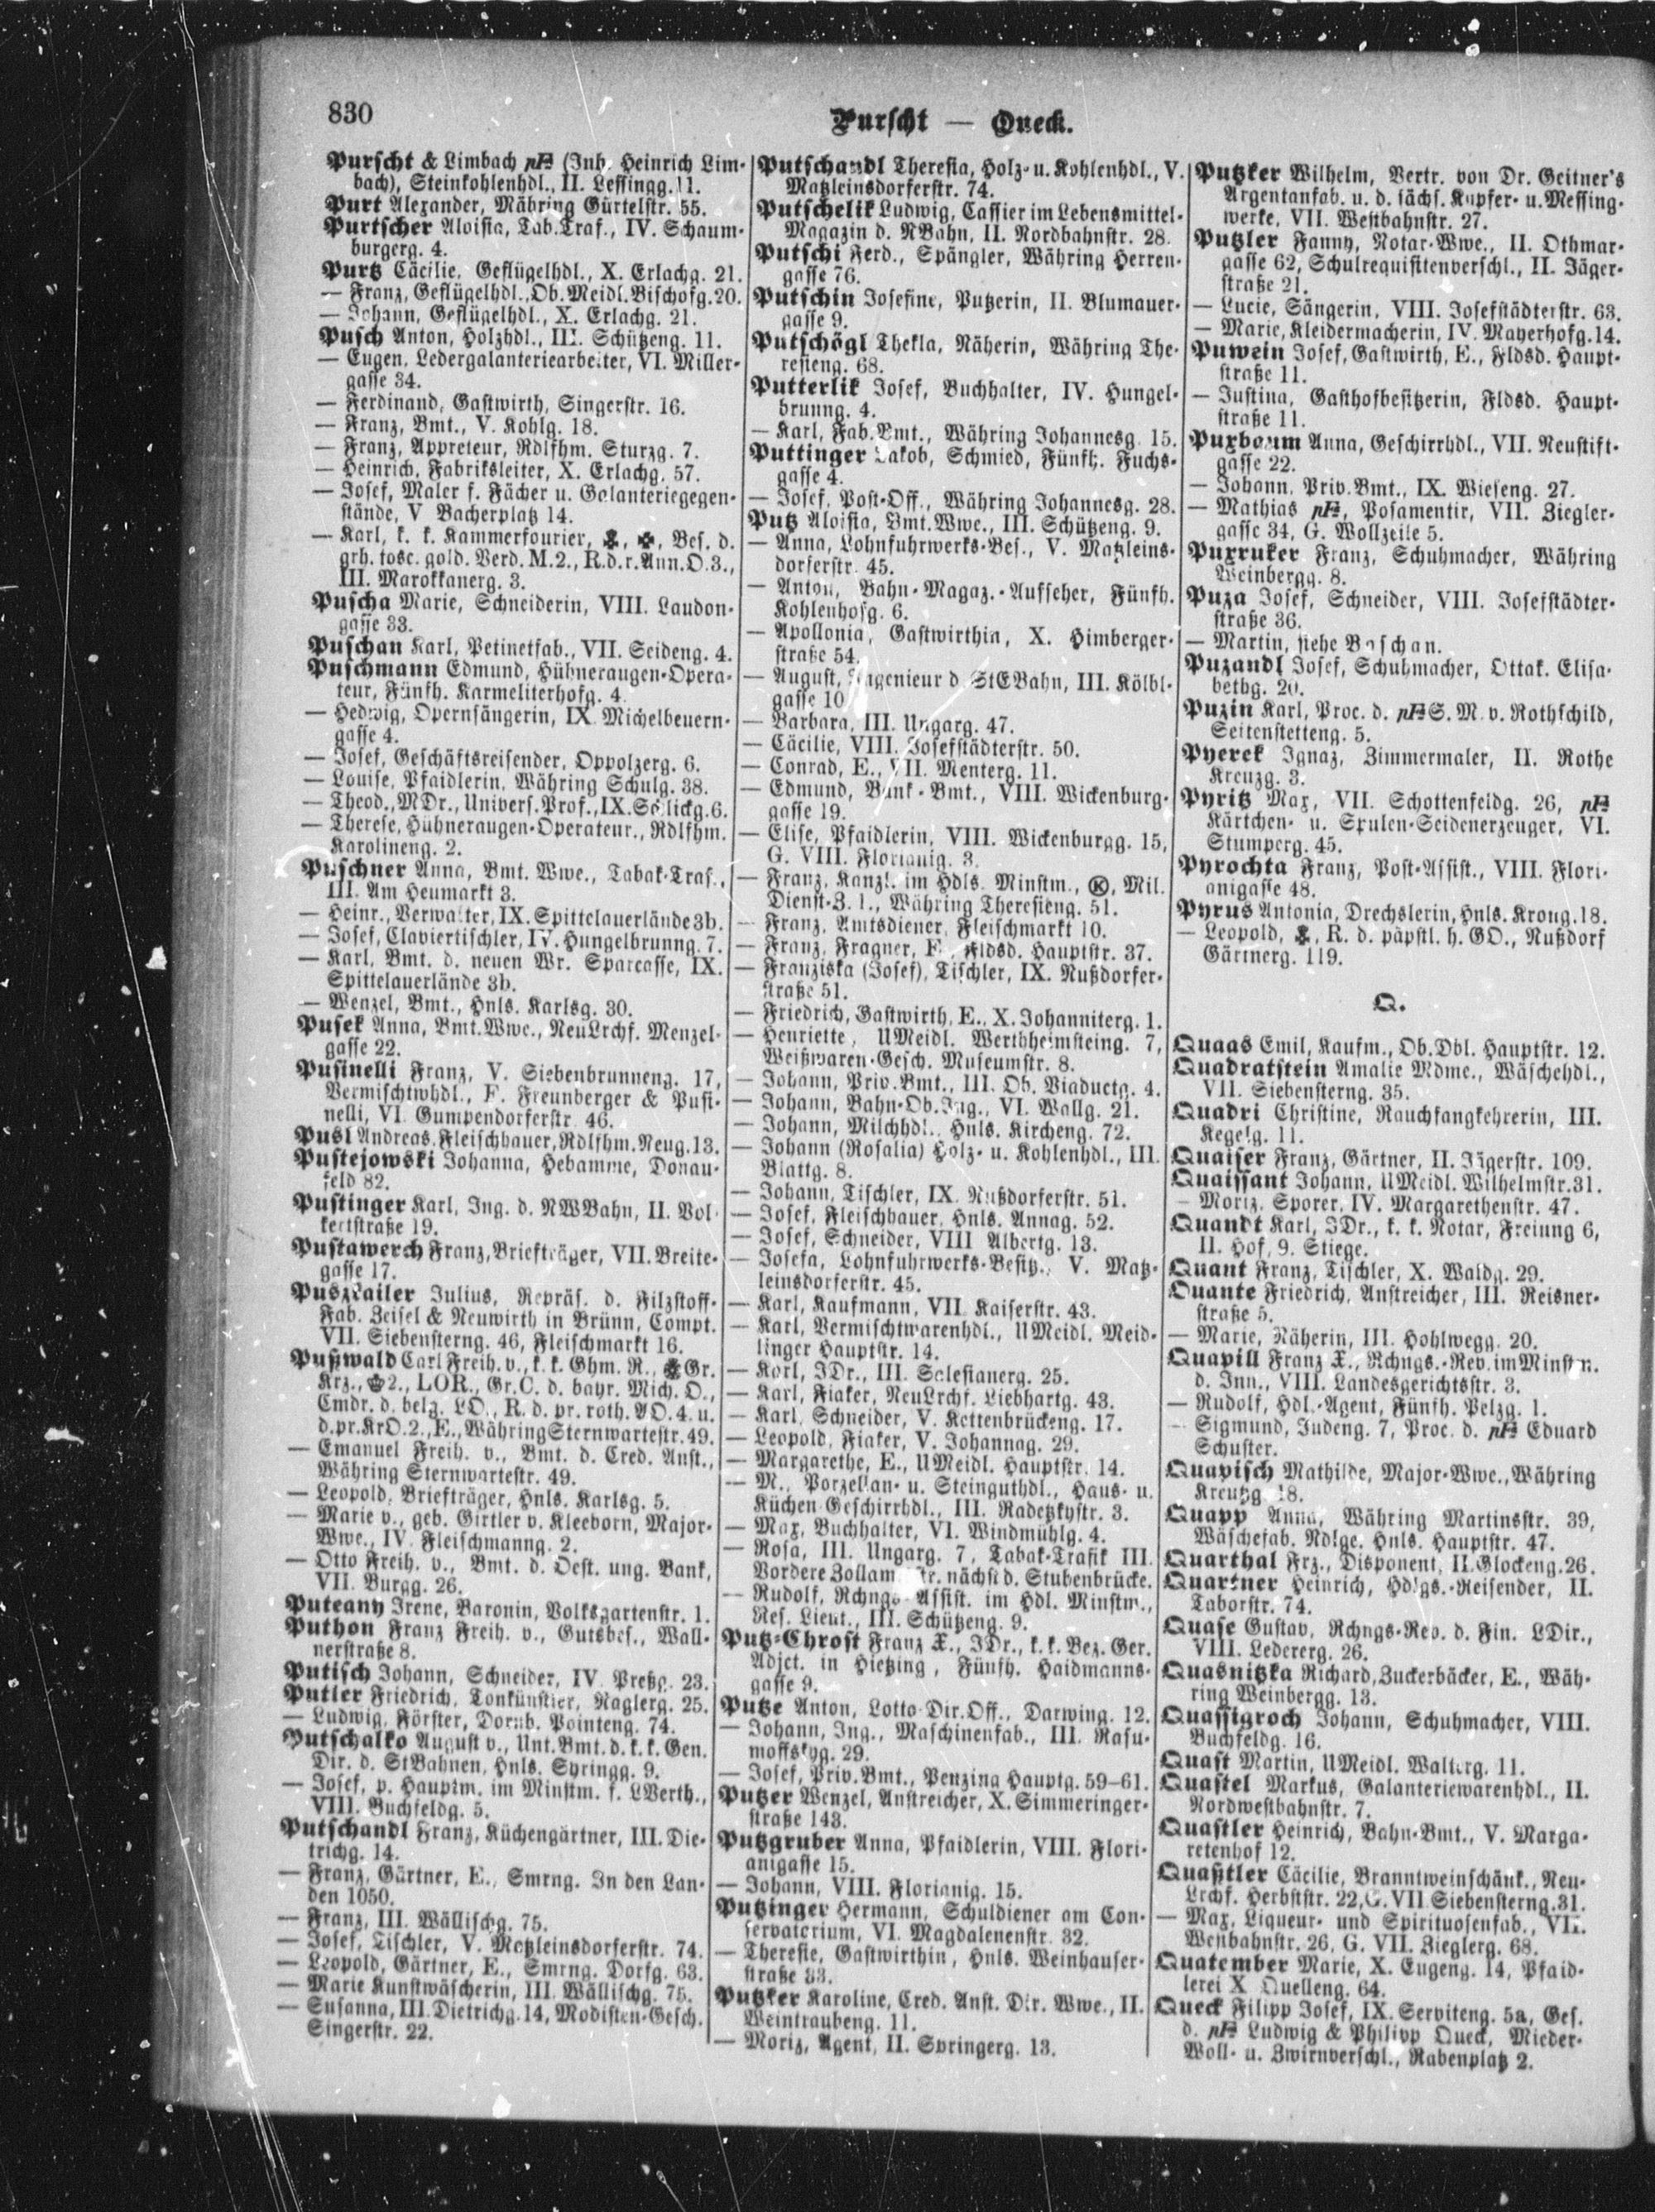 830
Purscht — Queck.
Purscht & Limbach (Inh. Heinrich Lim-
bach), Steinkohlenhdl., II. Lessingg. 11.
Purt Alexander, Währing Gürtelstr. 55.
Purtscher Aloisia, Tab.Traf., IV. Schaum-
burgerg. 4.
Purtz Cäcilie, Geflügelhdl., X. Erlachg. 21.
— Franz, Geflügelhdl., Ob.Meidl. Bischofg. 20.
— Johann, Geflügelhdl., X. Erlachg. 21.
Pusch Anton, Holzhdl., III. Schützeng. 11.
— Eugen, Ledergalanteriearbeiter, VI. Miller-
gasse 34.
— Ferdinand, Gastwirth, Singerstr. 16.
— Franz, Bmt., V. Kohlg. 18.
— Franz, Appreteur, Rdlfhm. Sturzg. 7.
— Heinrich, Fabriksleiter, X. Erlachg. 57.
— Josef, Maler f. Fächer u. Galanteriegegen-
stände, V Bacherplatz 14.
— Karl, k. k. Kammerfourier, Bes. d.
grh. tosc. gold. Verd. M.2., R.d.r.Ann.O.3.,
III. Marokkanerg. 3.
Puscha Marie, Schneiderin, VIII. Laudon-
gasse 33.
Puschan Karl, Petinetfab., VII. Seideng. 4.
Puschmann Edmund, Hühneraugen-Opera-
teur, Fünfh. Karmeliterhofg. 4.
— Hedwig, Opernsängerin, IX Michelbeuern-
gasse 4.
— Josef, Geschäftsreisender, Oppolzerg. 6.
— Louise, Pfaidlerin, Währing Schulg. 38.
— Theod., MDr., Univers. Prof., IX. Schlickg. 6.
— Therese, Hühneraugen-Operateur., Rdlfhm.
Karolineng. 2.
Puschner Anna, Bmt. Wwe., Tabak-Traf.,
III. Am Heumarkt 3.
— Heinr., Verwalter, IX. Spittelauerlände 3b.
— Josef, Claviertischler, IV. Hungelbrunng. 7.
— Karl, Bmt. d. neuen Wr. Sparcasse, IX.
Spittelauerlände 3b.
— Wenzel, Bmt., Hnls. Karlsg. 30.
Pusek Anna, Bmt.Wwe., NeuLrchf. Menzel-
gasse 22.
Pusinelli Franz, V. Siebenbrunneng. 17,
Vermischtwhdl., F. Freunberger & Pusi-
nelli, VI. Gumpendorferstr. 46.
Pusl Andreas, Fleischhauer, Rdlfhm. Neug. 13.
Pustejowski Johanna, Hebamme, Donau-
feld 82.
Pustinger Karl, Ing. d. NWBahn, II. Vol-
kertstraße 19.
Pustawerch Franz, Briefträger, VII. Breite-
gasse 17.
Puszkailer Julius, Repräs. d. Filzstoff-
Fab. Zeisel & Neuwirth in Brünn, Compt.
VII. Siebensterng. 46, Fleischmarkt 16.
Pußwald Carl Freih. v., k. k. Ghm. R., Gr.
Krz., 2., LOR., Gr.C. d. bayr. Mich. O.,
Cmdr. d. belg. LO., R. d. pr. roth. AO. 4. u.
d.pr.KrO.2., E., Währing Sternwartestr. 49.
— Emanuel Freih. v., Bmt. d. Cred. Anst.,
Währing Sternwartestr. 49.
— Leopold, Briefträger, Hnls. Karlsg. 5.
— Marie v., geb. Girtler v. Kleeborn, Major-
Wwe., IV Fleischmanng. 2.
— Otto Freih. v., Bmt. d. Oest. ung. Bank,
VII. Burgg. 26.
Puteany Irene, Baronin, Volksgartenstr. 1.
Puthon Franz Freih. v., Gutsbes., Wall-
nerstraße 8.
Putisch Johann, Schneider, IV Preßg. 23.
Putler Friedrich, Tonkünstler, Naglerg. 25.
— Ludwig, Förster, Dornb. Pointeng. 74.
Putschalko August v., Unt.Bmt. d. k. k. Gen.
Dir. d. StBahnen, Hnls. Syringg. 9.
— Josef, p. Hauptm. im Minstm. f. LVerth.,
VIII. Buchfeldg. 5.
Putschandl Franz, Küchengärtner, III. Die-
trichg. 14.
— Franz, Gärtner, E., Smrng. In den Lan-
den 1050.
— Franz, III. Wällischg. 75.
— Josef, Tischler, V. Matzleinsdorferstr. 74.
— Leopold, Gärtner, E., Smrng. Dorfg. 63.
— Marie Kunstwäscherin, III. Wällischg. 75.
— Susanna, III. Dietrichg. 14, Modisten-Gesch.
Singerstr. 22.
Putschandl Theresia, Holz- u. Kohlenhdl., V.
Matzleinsdorferstr. 74.
Putschelik Ludwig, Cassier im Lebensmittel-
Magazin d. NBahn, II. Nordbahnstr. 28.
Putschi Ferd., Spängler, Währing Herren-
gasse 76.
Putschin Josefine, Putzerin, II. Blumauer-
gasse 9.
Putschögl Thekla, Näherin, Währing The-
resieng. 68.
Putterlik Josef, Buchhalter, IV. Hungel-
brunng. 4.
— Karl, Fab.Bmt., Währing Johannesg. 15.
Puttinger Jakob, Schmied, Fünfh. Fuchs-
gasse 4.
— Josef, Post-Off., Währing Johannesg. 28.
Putz Aloisia, Bmt.Wwe., III. Schützeng. 9.
— Anna, Lohnfuhrwerks-Bes., V. Matzleins-
dorferstr. 45.
— Anton, Bahn-Magaz.-Aufseher, Fünfh.
Kohlenhofg. 6.
— Apollonia, Gastwirthin, X. Himberger-
straße 54.
— August, Ingenieur d StEBahn, III. Kölbl-
gasse 10
— Barbara, III. Ungarg. 47.
— Cäcilie, VIII. Josefstädterstr. 50.
— Conrad, E., VII. Menterg. 11.
— Edmund, Bank-Bmt., VIII. Wickenburg-
gasse 19.
— Elise, Pfaidlerin, VIII. Wickenburgg. 15,
G. VIII. Florianig. 3.
— Franz, Kanzl. im Hdls. Minstm., Ⓚ, Mil.
Dienst-Z. 1., Währing Theresieng. 51.
— Franz, Amtsdiener, Fleischmarkt 10.
— Franz, Fragner, E., Fldsd. Hauptstr. 37.
— Franziska (Josef), Tischler, IX. Nußdorfer-
straße 51.
— Friedrich, Gastwirth, E., X. Johanniterg. 1.
— Henriette, UMeidl. Wertheimsteing. 7,
Weißwaren-Gesch. Museumstr. 8.
— Johann, Priv.Bmt., III. Ob. Viaductg. 4.
— Johann, Bahn-Ob.Ing., VI. Wallg. 21.
— Johann, Milchhdl., Hnls. Kircheng. 72.
— Johann (Rosalia) Holz- u. Kohlenhdl., III.
Blattg. 8.
— Johann, Tischler, IX. Nußdorferstr. 51.
— Josef, Fleischhauer, Hnls. Annag. 52.
— Josef, Schneider, VIII Albertg. 13.
— Josefa, Lohnfuhrwerks-Besitz., V. Matz-
leinsdorferstr. 45.
— Karl, Kaufmann, VII Kaiserstr. 43.
— Karl, Vermischtwarenhdl., UMeidl. Meid-
linger Hauptstr. 14.
— Karl, JDr., III. Salesianerg. 25.
— Karl, Fiaker, NeuLrchf. Liebhartg. 43.
— Karl, Schneider, V. Kettenbrückeng. 17.
— Leopold, Fiaker, V. Johannag. 29.
— Margarethe, E., UMeidl. Hauptstr. 14.
— M., Porzellan- u. Steinguthdl., Haus- u.
Küchen-Geschirrhdl., III. Radetzkystr. 3.
— Max, Buchhalter, VI. Windmühlg. 4.
— Rosa, III. Ungarg. 7, Tabak-Trafik III.
Vordere Zollamtsstr. nächst d. Stubenbrücke.
— Rudolf, Rchngs Assist. im Hdl. Minstm.,
Res. Lieut., III. Schützeng. 9.
Putz-Chrost Franz X., JDr., k. k. Bez. Ger.
Adjct. in Hietzing, Fünfh. Haidmanns-
gasse 9.
Putze Anton, Lotto-Dir.Off., Darwing. 12.
— Johann, Ing., Maschinenfab., III. Rasu-
moffskyg. 29.
— Josef, Priv.Bmt., Penzing Hauptg. 59–61.
Putzer Wenzel, Anstreicher, X. Simmeringer-
straße 143.
Putzgruber Anna, Pfaidlerin, VIII. Flori-
anigasse 15.
— Johann, VIII. Florianig. 15.
Putzinger Hermann, Schuldiener am Con-
servatorium, VI. Magdalenenstr. 32.
— Theresie, Gastwirthin, Hnls. Weinhauser-
straße 33.
Putzker Karoline, Cred. Anst. Dir. Wwe., II.
Weintraubeng. 11.
— Moriz, Agent, II. Springerg. 13.
Putzker Wilhelm, Vertr. von Dr. Geitner's
Argentanfab. u. d. sächs. Kupfer- u. Messing-
werke, VII. Westbahnstr. 27.
Putzler Fanny, Notar-Wwe., II. Othmar-
gasse 62, Schulrequisitenverschl., II. Jäger-
straße 21.
— Lucie, Sängerin, VIII. Josefstädterstr. 63.
— Marie, Kleidermacherin, IV. Mayerhofg. 14.
Puwein Josef, Gastwirth, E., Fldsd. Haupt-
straße 11.
— Justina, Gasthofbesitzerin, Fldsd. Haupt-
straße 11.
Puxbaum Anna, Geschirrhdl., VII. Neustift-
gasse 22.
— Johann, Priv.Bmt., IX. Wieseng. 27.
— Mathias, Posamentir, VII. Ziegler-
gasse 34, G. Wollzeile 5.
Puxruker Franz, Schuhmacher, Währing
Weinbergg. 8.
Puza Josef, Schneider, VIII. Josefstädter-
straße 36.
— Martin, siehe Baschan.
Puzandl Josef, Schuhmacher, Ottak. Elisa-
bethg. 20.
Puzin Karl, Proc. d. S. M. v. Rothschild,
Seitenstetteng. 5.
Pyerek Ignaz, Zimmermaler, II. Rothe
Kreuzg. 3.
Pyritz Max, VII. Schottenfeldg. 26,
Kärtchen- u. Spulen-Seidenerzeuger, VI.
Stumperg. 45.
Pyrochta Franz, Post-Assist., VIII. Flori-
anigasse 48.
Pyrus Antonia, Drechslerin, Hnls. Krong. 18.
— Leopold, R. d. päpstl. h. GO., Nußdorf
Gärtnerg. 119.
Q.
Quaas Emil, Kaufm., Ob.Dbl. Hauptstr. 12.
Quadratstein Amalie Mdme., Wäschehdl.,
VII. Siebensterng. 35.
Quadri Christine, Rauchfangkehrerin, III.
Kegelg. 11.
Quaiser Franz, Gärtner, II. Jägerstr. 109.
Quaissant Johann, UMeidl. Wilhelmstr. 31.
— Moriz, Sporer, IV. Margarethenstr. 47.
Quandt Karl, JDr., k. k. Notar, Freiung 6,
II. Hof, 9. Stiege.
Quant Franz, Tischler, X. Waldg. 29.
Quante Friedrich, Anstreicher, III. Reisner-
straße 5.
— Marie, Näherin, III. Hohlwegg. 20.
Quapill Franz X., Rchngs.-Rev. im Minstm.
d. Inn., VIII. Landesgerichtsstr. 3.
— Rudolf, Hdl.-Agent, Fünfh. Pelzg. 1.
— Sigmund, Judeng. 7, Proc. d. Eduard
Schuster.
Quapisch Mathilde, Major-Wwe., Währing
Kreutzg. 18.
Quapp Anna, Währing Martinsstr. 39,
Wäschefab. Ndlge. Hnls. Hauptstr. 47.
Quarthal Frz., Disponent, II. Glockeng. 26.
Quartner Heinrich, Hdlgs.-Reisender, II.
Taborstr. 74.
Quase Gustav, Rchngs-Rev. d. Fin. LDir.,
VIII. Ledererg. 26.
Quasnitzka Richard, Zuckerbäcker, E., Wäh-
ring Weinbergg. 13.
Quassigroch Johann, Schuhmacher, VIII.
Buchfeldg. 16.
Quast Martin, UMeidl. Walterg. 11.
Quastel Markus, Galanteriewarenhdl., II.
Nordwestbahnstr. 7.
Quastler Heinrich, Bahn-Bmt., V. Marga-
retenhof 12.
Quaßtler Cäcilie, Branntweinschänk., Neu-
Lrchf. Herbststr. 22, G. VII Siebensterng. 31.
— Max, Liqueur- und Spirituosenfab., VII.
Westbahnstr. 26, G. VII. Zieglerg. 68.
Quatember Marie, X. Eugeng. 14, Pfaid-
lerei X Quelleng. 64.
Queck Filipp Josef, IX. Serviteng. 5a, Ges.
d. Ludwig & Philipp Queck, Mieder-
Woll- u. Zwirnverschl., Rabenplatz 2.